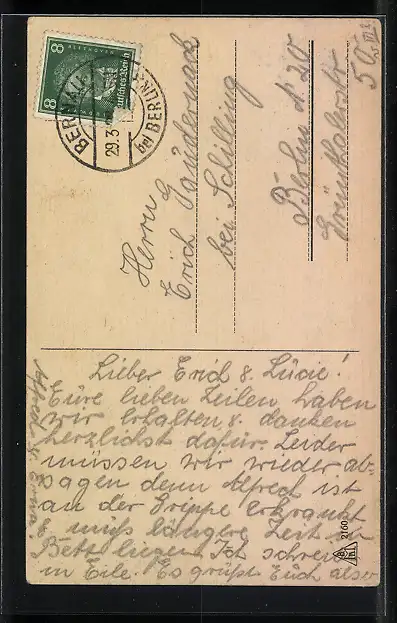 8
BEETHOVEN
Deutsches Reich
8
BERNAU
29.3
bei BERLIN
Herrn
Erich Gaudernack
bei Schilling
Berlin N 20
Grünthalerstr
5 a
Lieber Erich & Lucie!
Eure lieben Zeilen haben
wir erhalten & danken
herzlichst dafür. Leider
müssen wir wieder ab-
sagen denn Alfred ist
an der Grippe erkrankt
& muß längere Zeit im
Bett liegen. Ich schreibe
in Eile. Es grüßt Euch also
Alfred & Erna
2160